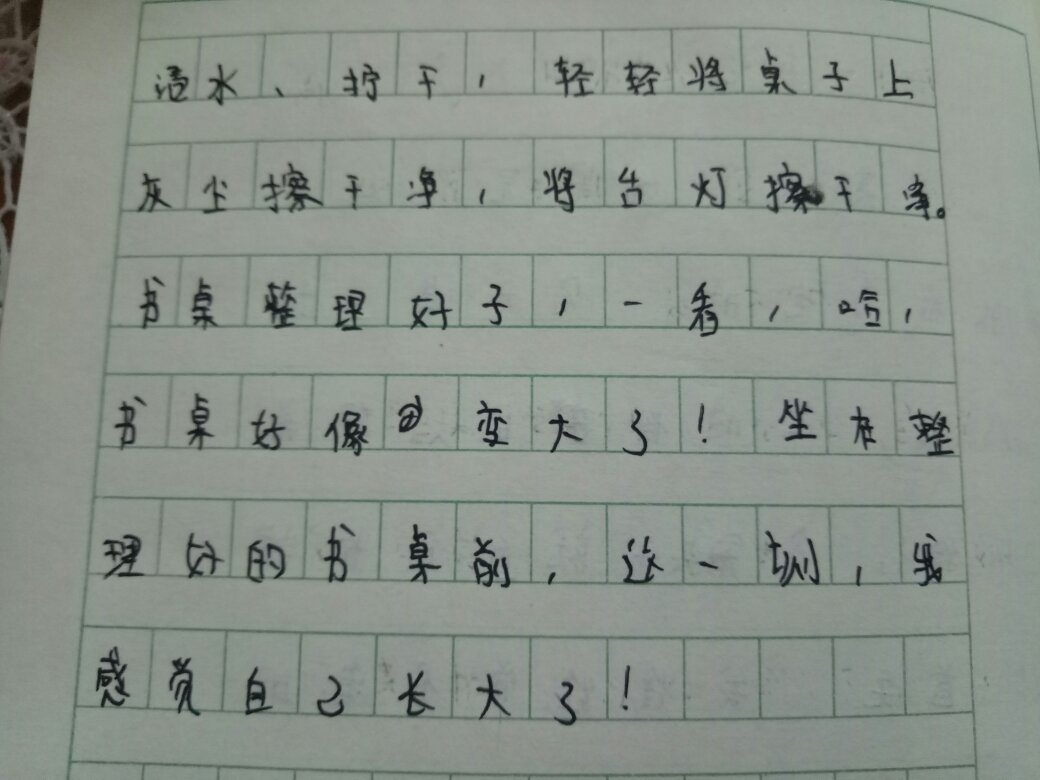 水、拧干，轻轻将桌子上
灰尘擦干净，将台灯擦干净。
书桌整理好了，一看，哈，
书桌好像变大了！坐在整
理好的书桌前，这一刻，我
感觉自己长大了！